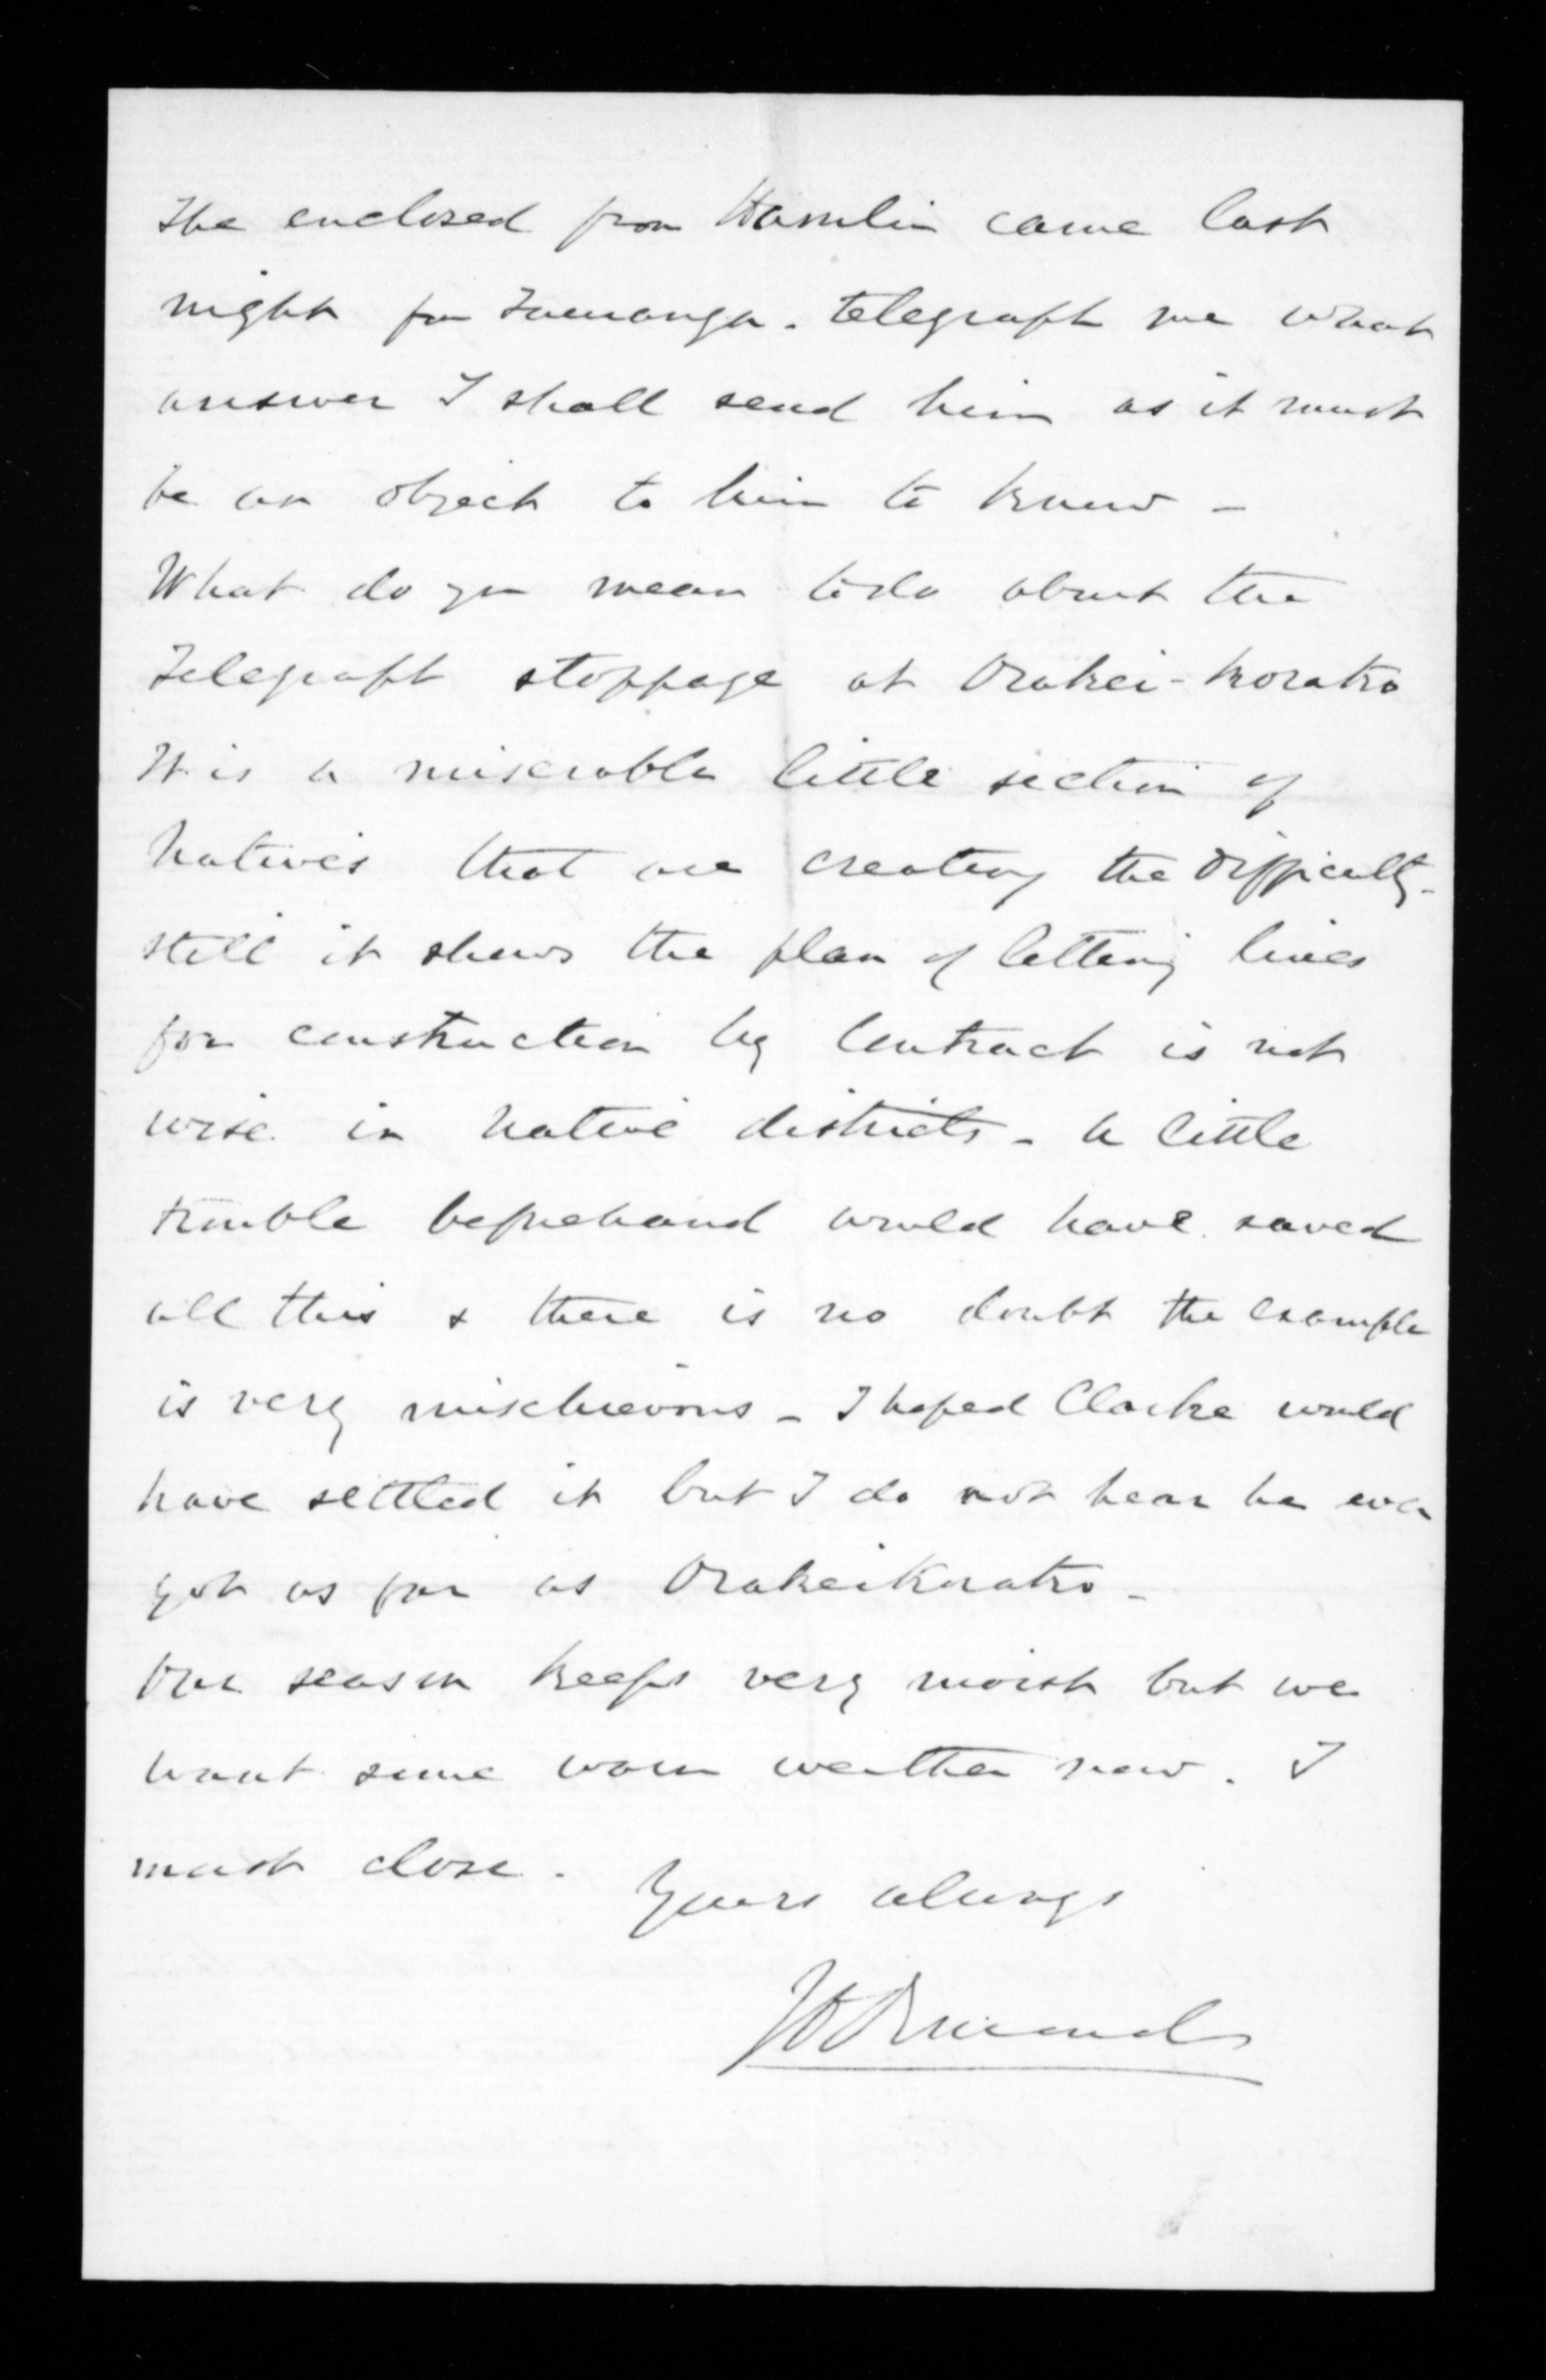 The enclosed from Hamlin came last
night for Tauranga. telegraph me what
answer I shall send him as it must
be an object to him to know -
What do you mean to do about the
Telegraph stoppage at Orakei-Korako
It is a miserable little section of
Natives that are creating the difficulty -
still it shews the plan of letting lines
for construction by Contract is not
wise in Native districts - a little
trouble beforehand would have saved
all this & there is no doubt the example
is very mischievous - I hoped Clarke would
have settled it but I do not hear he ever
got as far as OrakeiKorako -
Our season keeps very moist but we
want some warm weather now. I
must close.
Yours always
JD Ormond